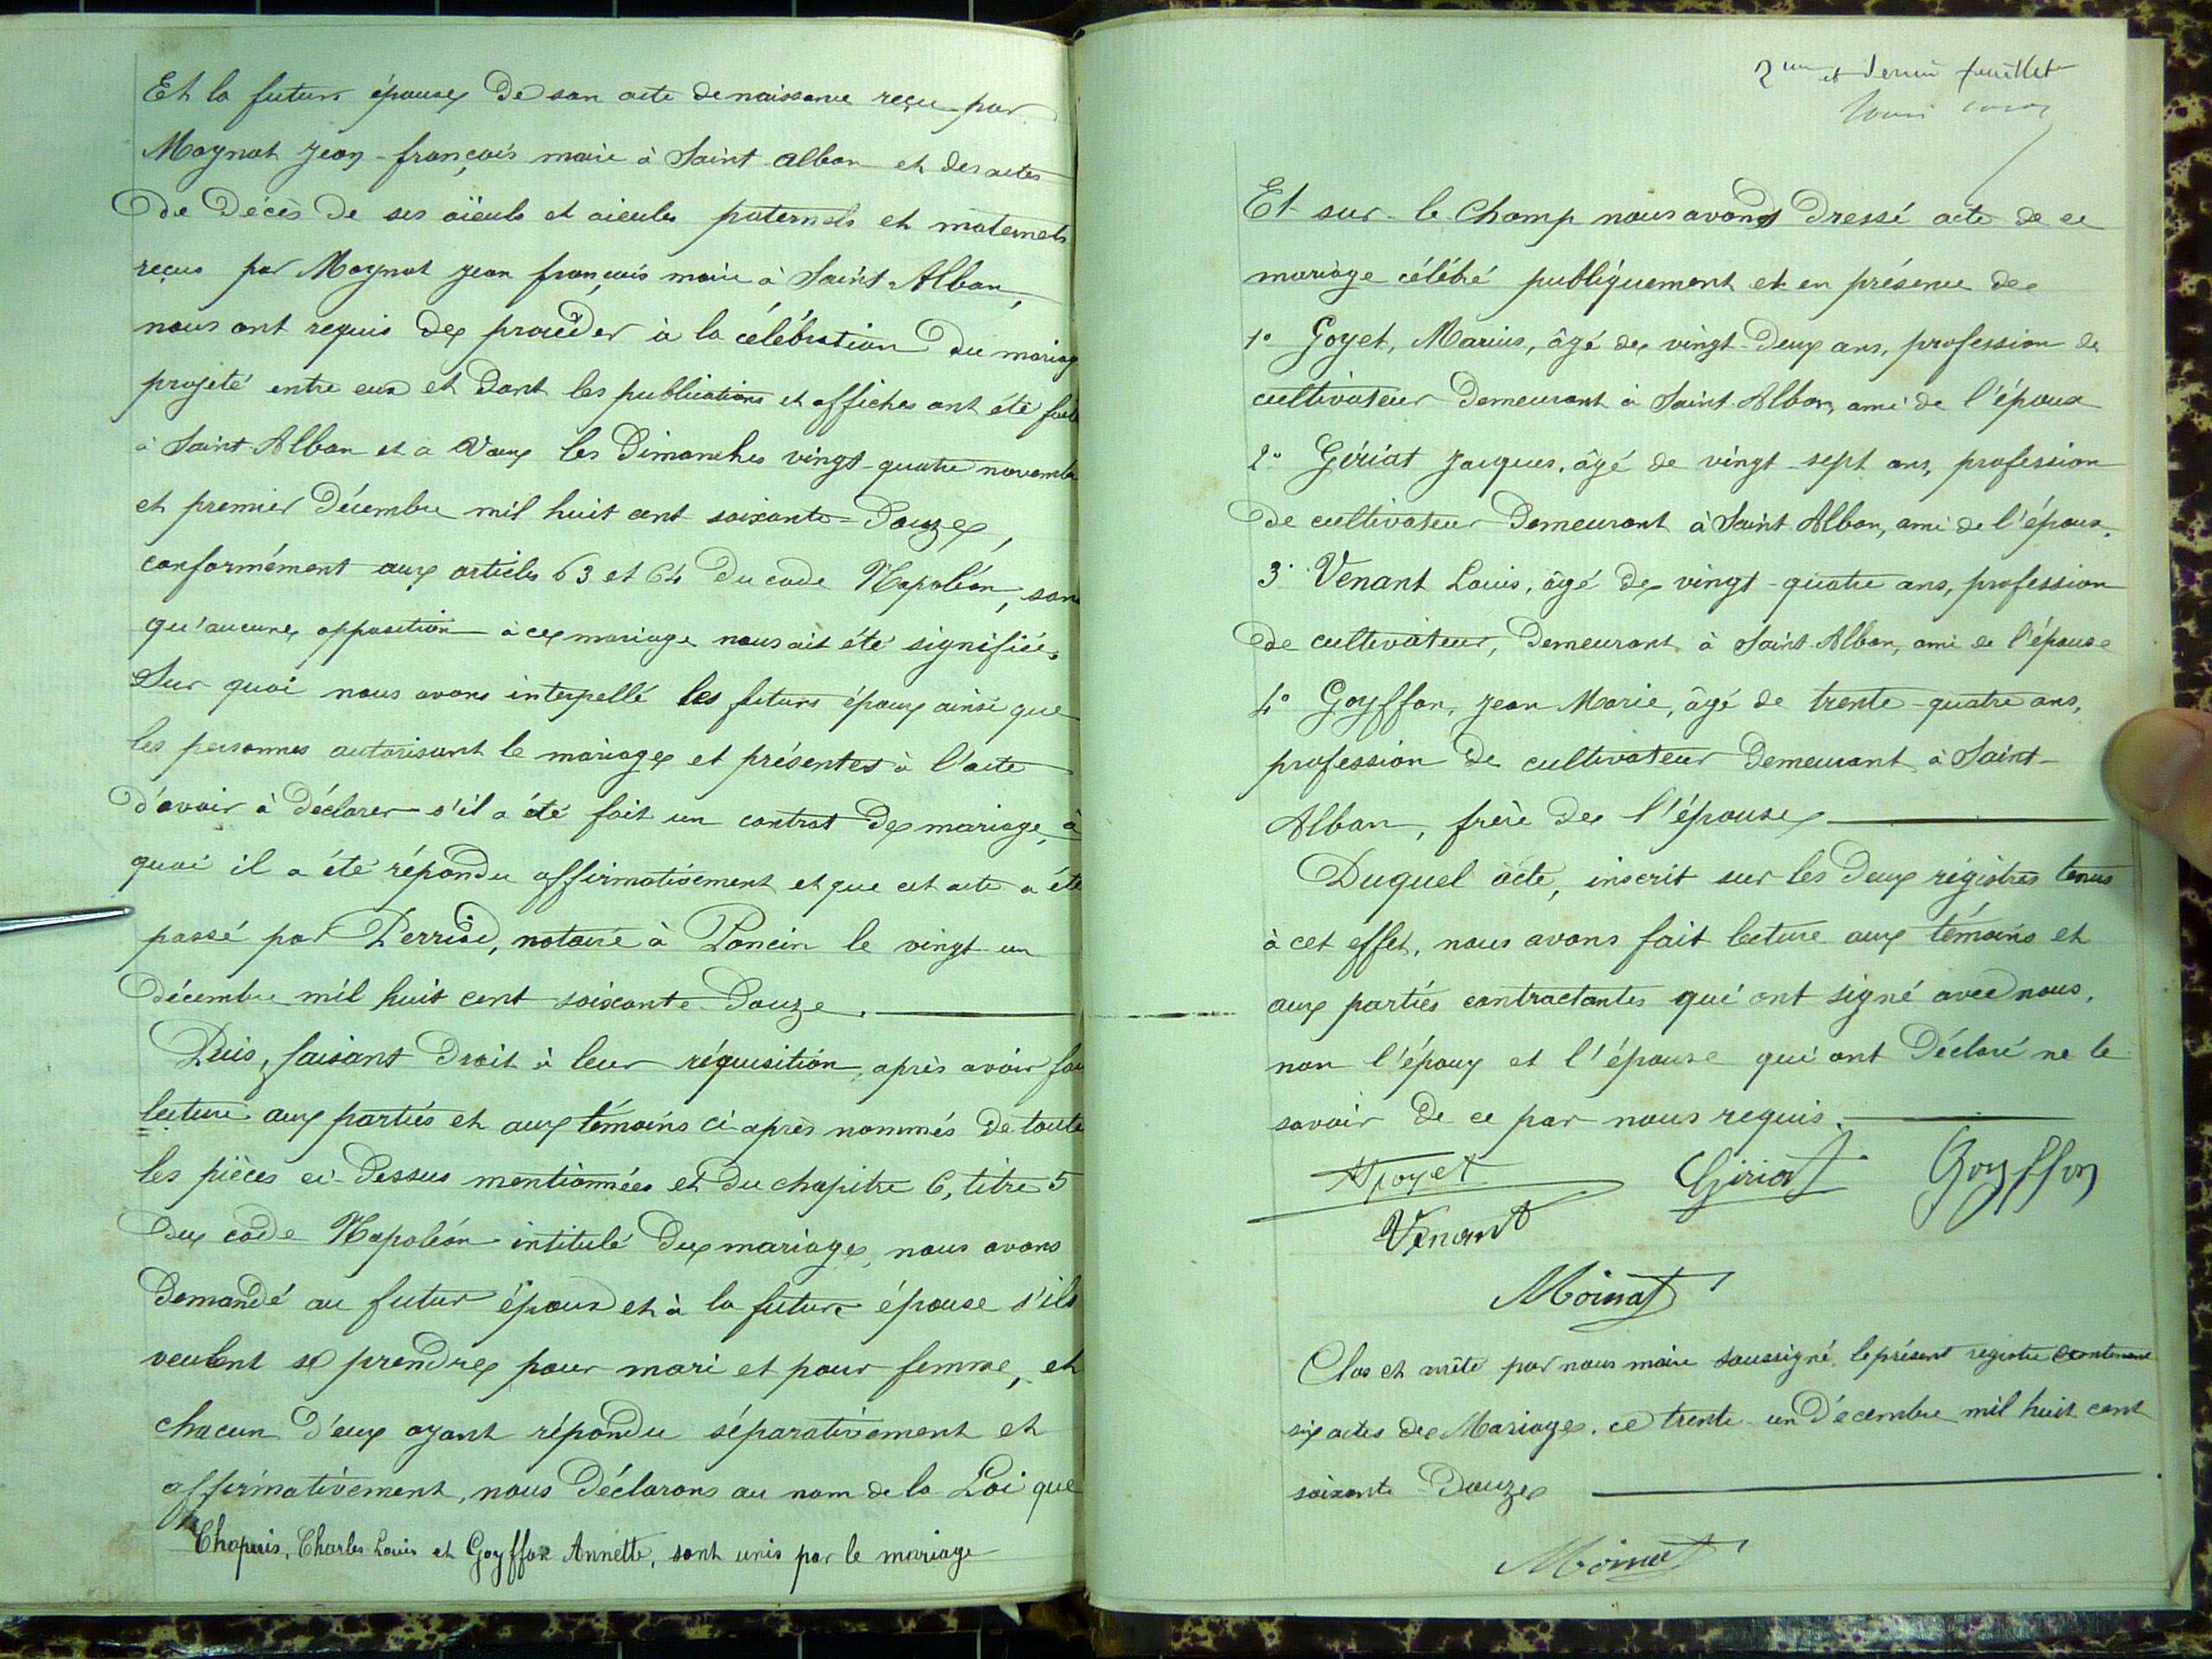 Et la future épouse de son acte de naissance reçu par
Moynat Jean-françois maire à Saint Alban et des actes
de décès de ses aïeuls et aïeules paternels et maternels
reçus par Moynat Jean françois maire à Saint-Alban,
nous ont requis de procéder à la célébration du mariage
projeté entre eux et dont les publications et affiches ont été
à Saint-Alban et à Vaux les Dimanches vingt-quatre novembre
et premier Décembre mil huit cent soixante-Douze,
conformément aux articles 63 et 64 du code Napoléon, sans
qu'aucune opposition à ce mariage nous ait été signifiée.
Sur quoi nous avons interpellé les futurs époux ainsi que
les personnes autorisant le mariage et présentes à l'acte
d'avoir à déclarer s'il a été fait un contrat de mariage, à
quoi il a été répondu affirmativement et que cet acte a été
passé par Perrod, notaire à Poncin le vingt un
décembre mil huit cent soixante Douze.
Puis, faisant droit à leur réquisition, après avoir
lecture aux parties et aux témoins ci-après nommés de toute
les pièces ci-dessus mentionnées et du chapitre 6, titre 5
du code Napoléon intitulé du mariage, nous avons
demandé au futur époux et à la future épouse s'ils
veulent se prendre pour mari et pour femme, et
chacun d'eux ayant répondu séparativement et
affirmativement, nous déclarons au nom de la Loi que
Chapuis, Charles Louis et Goyffon Annette, sont unis par le mariage
2me et dernier feuillet
Et sur-le-Champ nous avons dressé acte de ce
mariage célébré publiquement et en présence de
1° Goyet, Marius, âgé de vingt-deux ans, profession de
cultivateur demeurant à Saint-Alban, ami de l'époux
2° Gériat Jacques, âgé de vingt-sept ans, profession
de cultivateur demeurant à Saint Alban, ami de l'époux.
3° Venant Louis, âgé de vingt-quatre ans, profession
de cultivateur, demeurant à Saint-Alban, ami de l'épouse
4° Goyffon, Jean Marie, âgé de trente-quatre ans,
profession de cultivateur demeurant à Saint-
Alban, frère de l'épouse
Duquel acte, inscrit sur les deux régistres tenus
à cet effet, nous avons fait lecture aux témoins et
aux parties contractantes qui ont signé avec nous,
non l'époux et l'épouse qui ont déclaré ne le
savoir de ce par nous requis.
Goyet Giriat Goyffon
Venant
Moinat
Clos et arrêté par nous maire soussigné, le présent registre contenant
six actes de Mariages. ce trente-un décembre mil huit cent
soixante Douze
Moinat